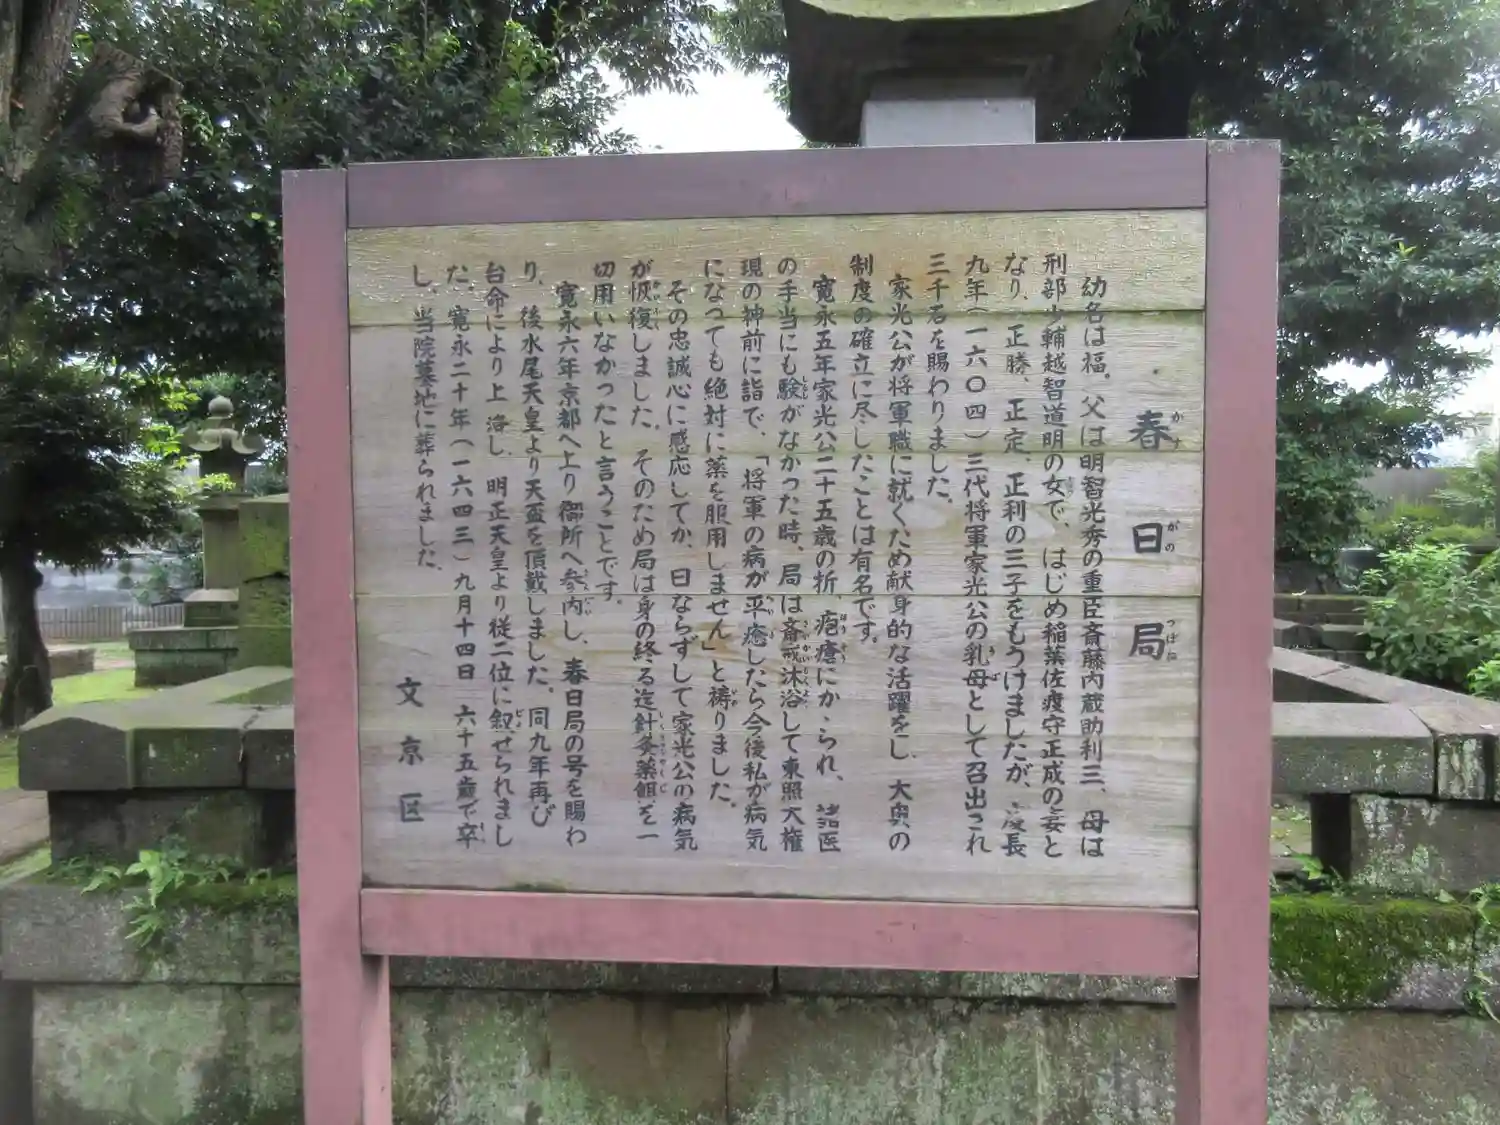 春日局
かすがのつぼね
幼名は福。父は明智光秀の重臣斎藤内蔵助利三、母は
刑部少輔越智道明の女で、はじめ稲葉佐渡守正成の妾と
なり、正勝、正定、正利の三子をもうけましたが、慶長
九年(一六〇四)三代将軍家光公の乳母として召出され
三千石を賜わりました。
家光公が将軍職に就くため献身的な活躍をし、大奥の
制度の確立に尽したことは有名です。
寛永五年家光公二十五歳の折、疱瘡にかゝられ、諸医
の手当にも験がなかった時、局は斎戒沐浴して東照大権
現の神前に詣で、「将軍の病が平癒したら今後私が病気
になっても絶対に薬を服用しません」と祷りました。
その忠誠心に感応してか、日ならずして家光公の病気
が恢復しました。そのため局は身の終る迄針灸薬餌を一
切用いなかったと言うことです。
寛永六年京都へ上り御所へ参内し、春日局の号を賜わ
り、後水尾天皇より天盃を頂戴しました。同九年再び
台命により上洛し、明正天皇より従二位に叙せられまし
た。寛永二十年(一六四三)九月十四日 六十五歳で卒
し、当院墓地に葬られました。
文京区